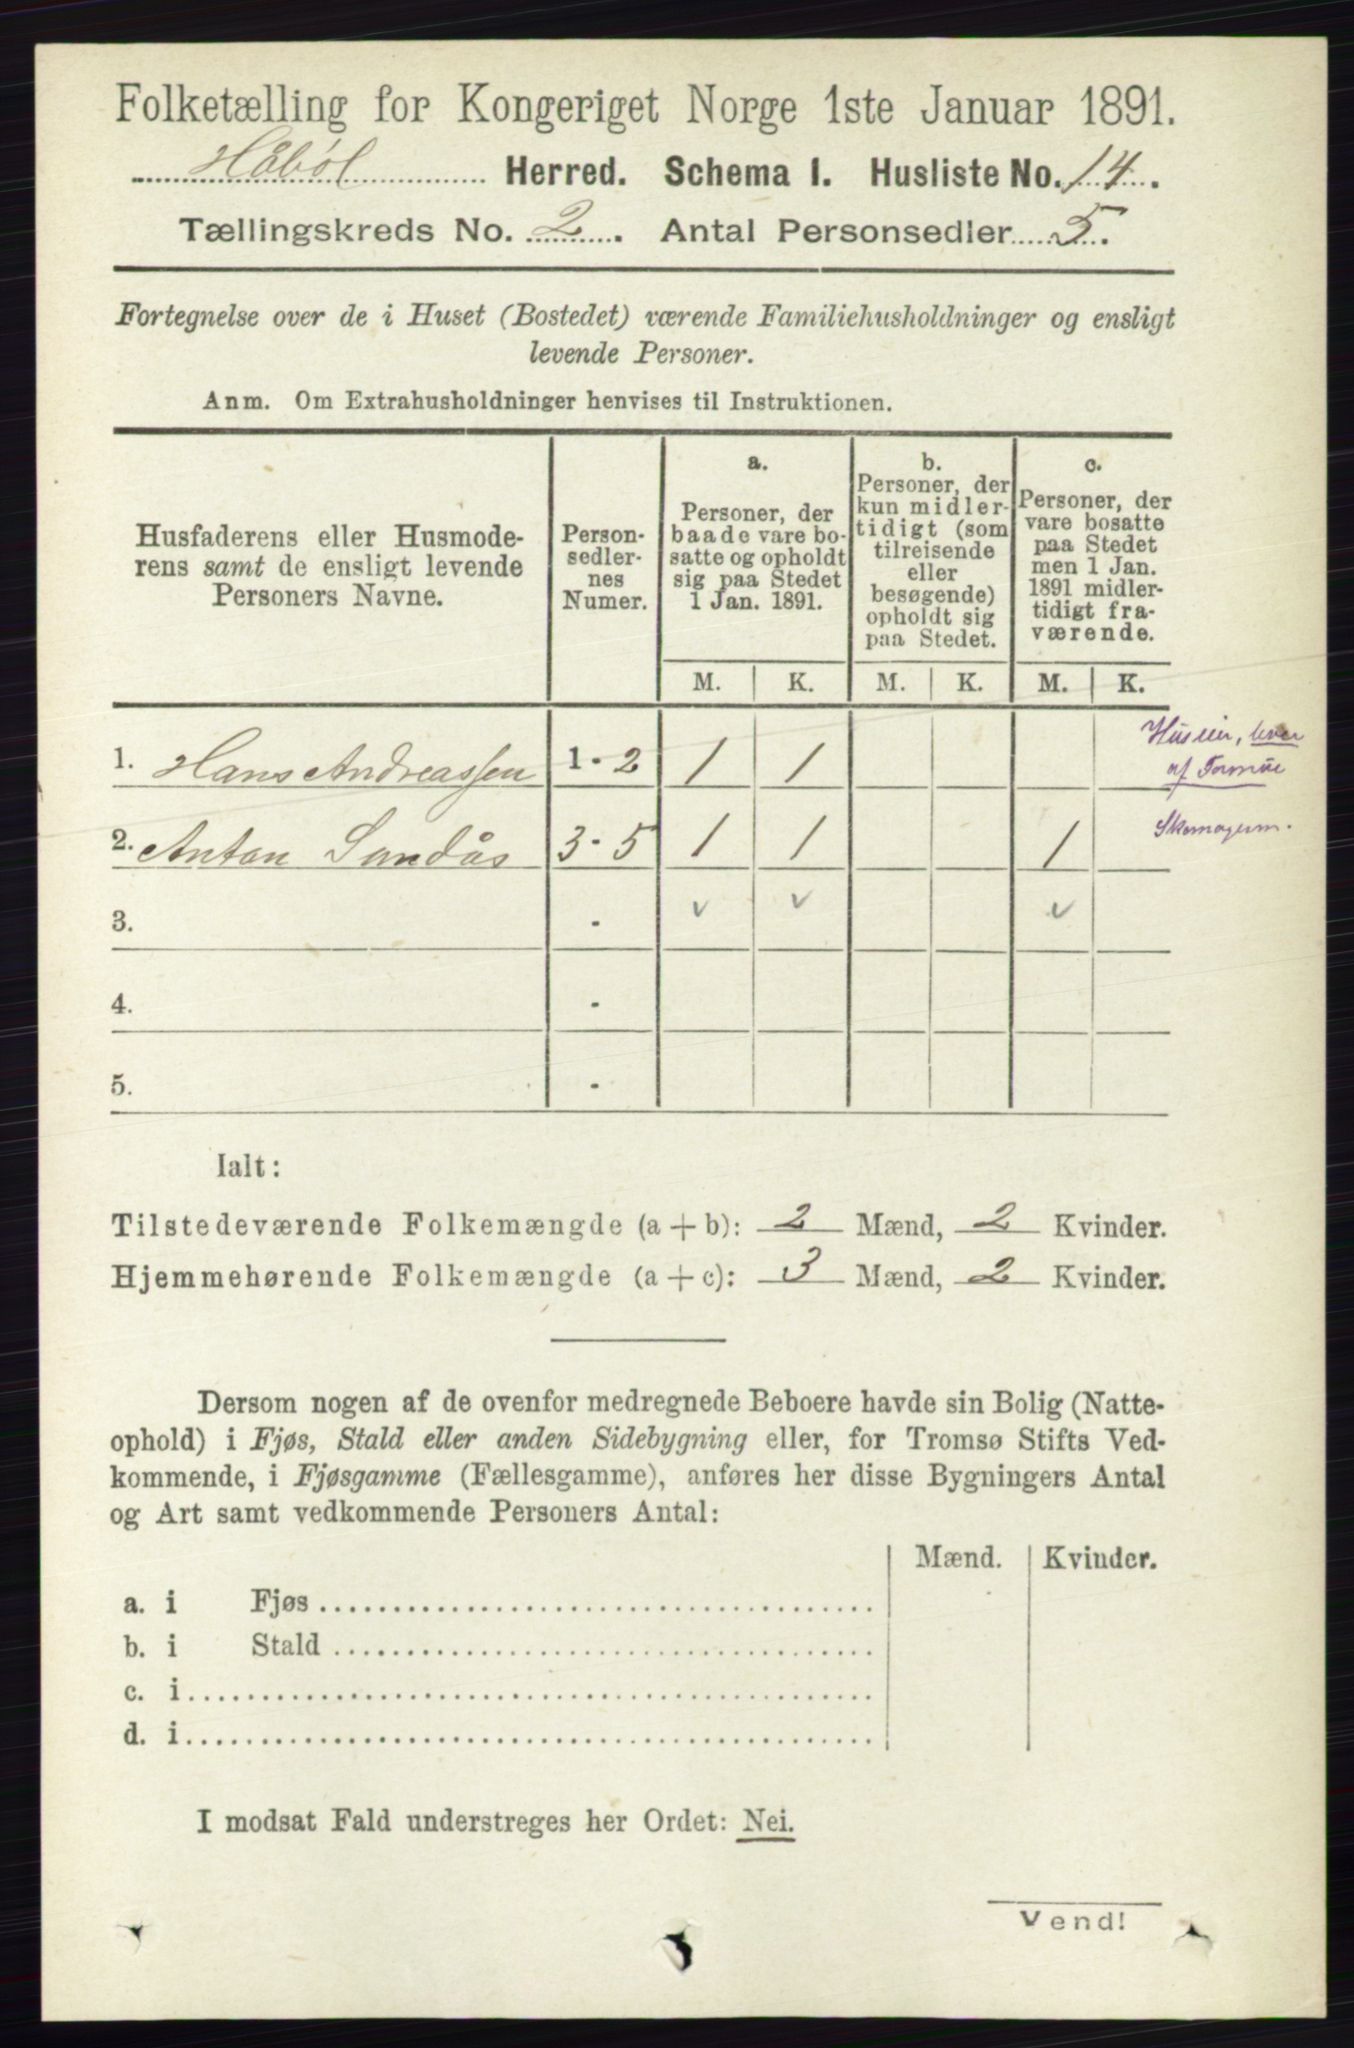 Folketælling for Kongeriget Norge 1ste Januar 1891.
Håbøl Herred. Schema I. Husliste No. 14.
Tællingskreds No. 2. Antal Personsedler 5.
Fortegnelse over de i Huset (Bostedet) værende Familiehusholdninger og ensligt
levende Personer.
Anm. Om Extrahusholdninger henvises til Instruktionen.
Husfaderens eller Husmode-
rens samt de ensligt levende
Personers Navne.
Person-
sedler-
nes
Numer.
a.
Personer, der
baade vare bo-
satte og opholdt
sig paa Stedet
1 Jan. 1891.
b.
Personer, der
kun midler-
tidigt (som
tilreisende
eller
besøgende)
opholdt sig
paa Stedet.
c.
Personer, der
vare bosatte
paa Stedet
men 1 Jan.
1891 midler-
tidigt fra-
værende.
M. K. M. K. M. K.
1. Hans Andreassen 1 - 2 1 1 Huseier, lever
af Formue
2. Anton Sundås 3 - 5 1 1 1
3. - v v v
4. -
5. -
Ialt:
Tilstedeværende Folkemængde (a + b): 2 Mænd, 2 Kvinder.
Hjemmehørende Folkemængde (a + c): 3 Mænd, 2 Kvinder.
Dersom nogen af de ovenfor medregnede Beboere havde sin Bolig (Natte-
ophold) i Fjøs, Stald eller anden Sidebygning eller, for Tromsø Stifts Ved-
kommende, i Fjøsgamme (Fællesgamme), anføres her disse Bygningers Antal
og Art samt vedkommende Personers Antal:
Mænd. Kvinder.
a. i Fjøs
b. i Stald
c. i
d. i
I modsat Fald understreges her Ordet: Nei.
Vend!